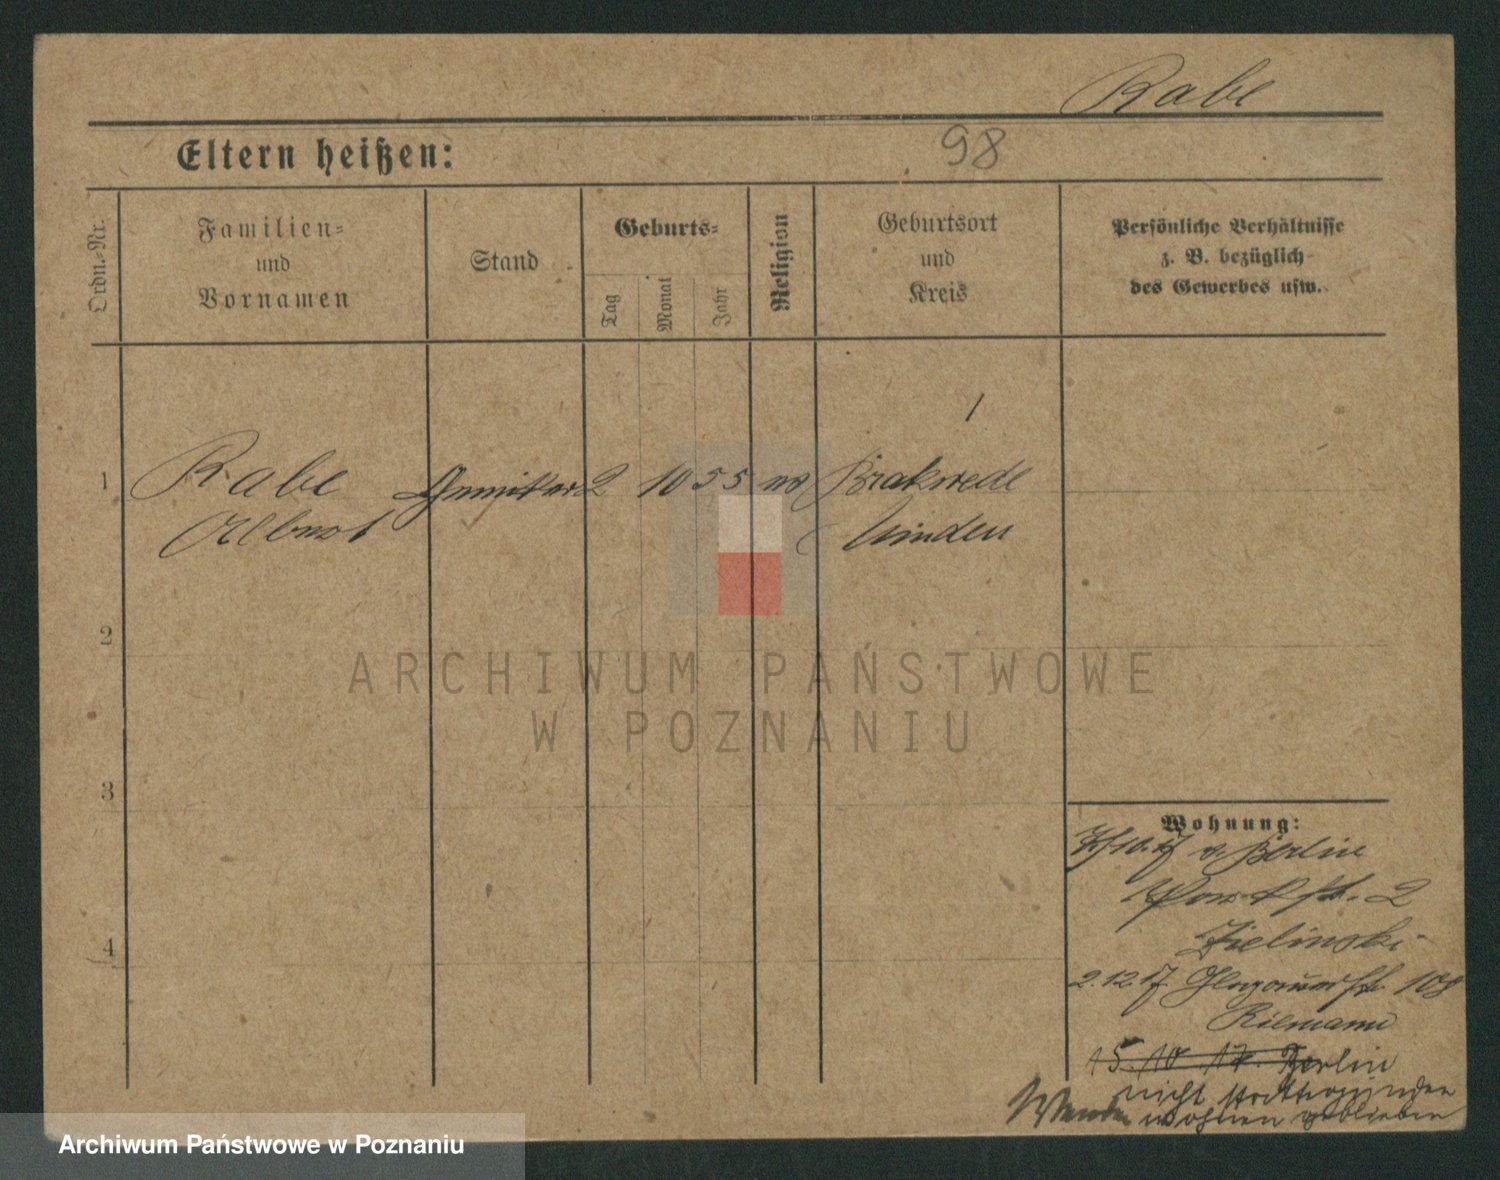 Rabe
98
Eltern heißen:
Ordn.-Nr.
Familien-
und
Vornamen
Stand
Geburts-
Tag
Monat
Jahr
Religion
Geburtsort
und
Kreis
Persönliche Verhältnisse
z. B. bezüglich
des Gewerbes usw.
1
Rabe 2 10 55 Brakwede
Albert Minden
2
3
4
Wohnung:
v. Berlin
2
Zielinski
2.12.17. Glogauerstr. 108
Riemann
15.10.17. Berlin
nicht stattgefunden
wohnen geblieben
Wenden
ARCHIWUM PAŃSTWOWE
W POZNANIU
Archiwum Państwowe w Poznaniu